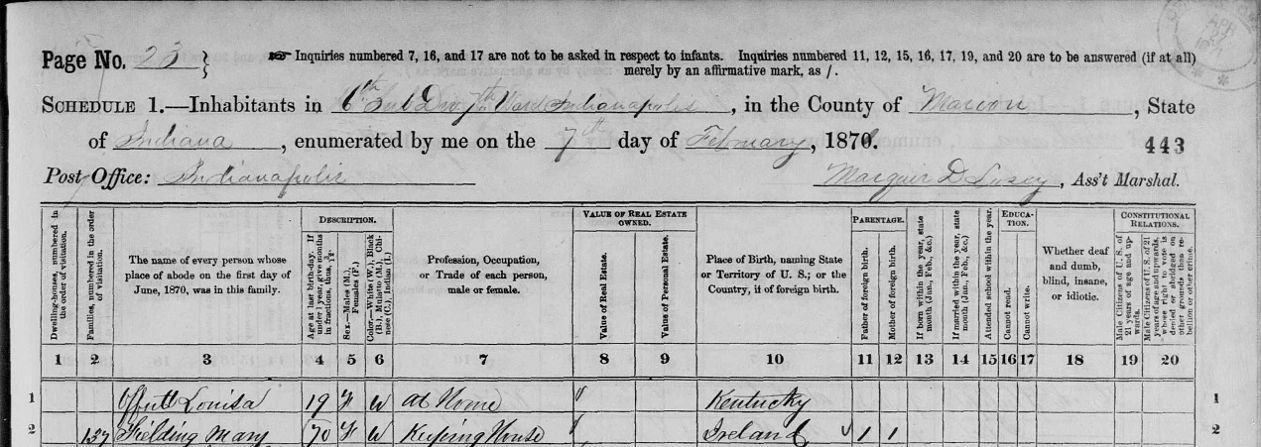 Page No. 23 } ☞ Inquiries numbered 7, 16, and 17 are not to be asked in respect to infants. Inquiries numbered 11, 12, 15, 16, 17, 19, and 20 are to be answered (if at all)
merely by an affirmative mark, as /.
SCHEDULE 1.—Inhabitants in 6th Sub Div 7th Ward Indianapolis, in the County of Marion, State
of Indiana, enumerated by me on the 7th day of February, 1871.
443
Post Office: Indianapolis D , Ass't Marshal.
Dwelling-houses, numbered in the order of visitation.
Families, numbered in the order of visitation.
The name of every person whose place of abode on the first day of June, 1870, was in this family.
DESCRIPTION.
Age at last birth-day. If under 1 year, give months in fractions, thus, 3/12.
Sex.—Males (M.), Females (F.)
Color.—White (W.), Black (B.), Mulatto (M.), Chinese (C.), Indian (I.)
Profession, Occupation, or Trade of each person, male or female.
VALUE OF REAL ESTATE OWNED.
Value of Real Estate.
Value of Personal Estate.
Place of Birth, naming State or Territory of U. S.; or the Country, if of foreign birth.
PARENTAGE.
Father of foreign birth.
Mother of foreign birth.
If born within the year, state month (Jan., Feb., &c.)
If married within the year, state month (Jan., Feb., &c.)
Attended school within the year.
EDUCATION.
Cannot read.
Cannot write.
Whether deaf and dumb, blind, insane, or idiotic.
CONSTITUTIONAL RELATIONS.
Male Citizens of U. S. of 21 years of age and upwards.
Male Citizens of U. S. of 21 years of age and upwards, whose right to vote is denied or abridged on other grounds than rebellion or other crime.
1 2 3 4 5 6 7 8 9 10 11 12 13 14 15 16 17 18 19 20
1 Offutt Louisa 19 F W At Home Kentucky 1
2 137 Fielding Mary 70 F W Keeping House Ireland 1 1 2